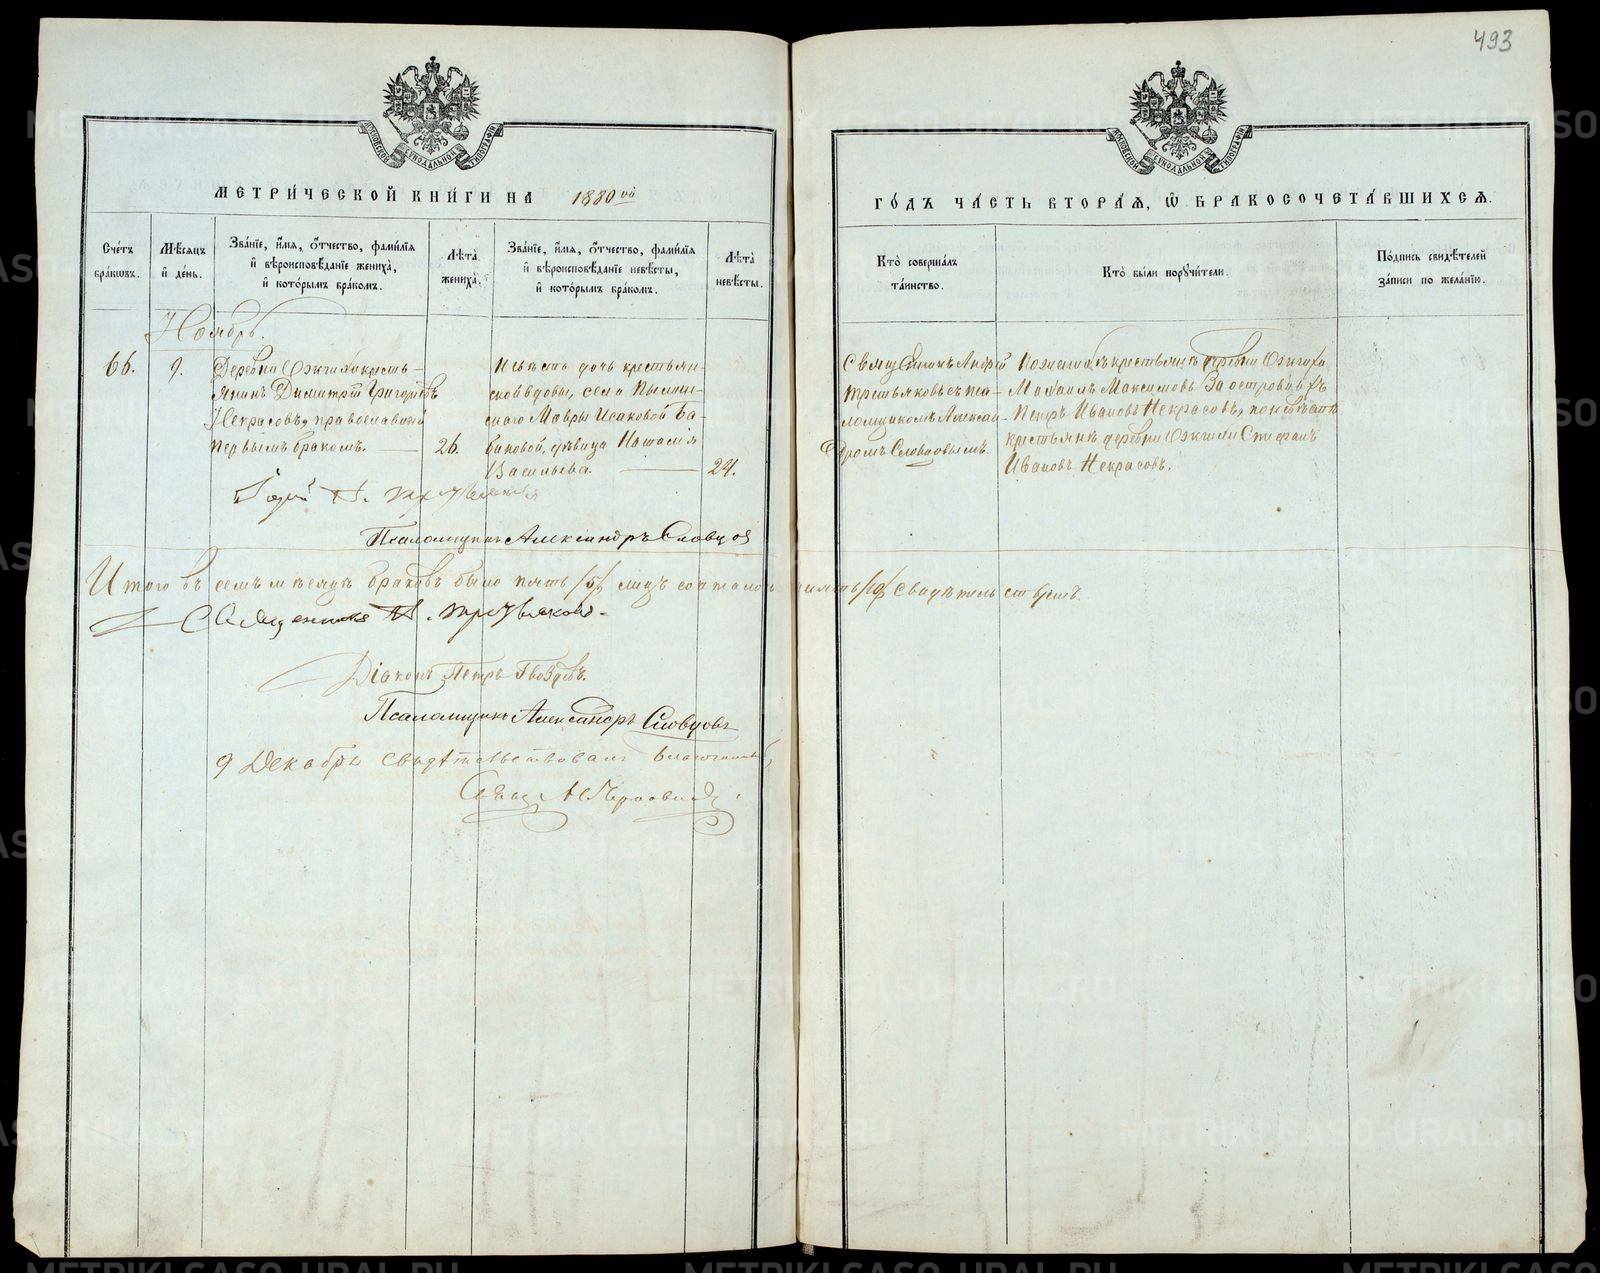 493
МОСКОВСКОЙ СѴНОДАЛЬНОЙ ТИПОГРАФІИ
МОСКОВСКОЙ СѴНОДАЛЬНОЙ ТИПОГРАФІИ
МЕТРИ́ЧЕСКОЙ КНИ́ГИ НА 1880ый
ГО́ДЪ ЧАСТЬ ВТОРАѦ, Ѿ БРАКОСОЧЕТА́ВШИХСѦ.
Сче́тъ бра́кѡвъ.
Мѣ́сѧцъ и҆ де́нь.
Зва́нїе, и҆́мѧ, о҆́тчество, фами́лїѧ и҆ вѣроисповѣ́данїе жениха̀, и҆ кото́рымъ бра́комъ.
Лѣ́та̀ жениха̀.
Зва́нїе, и҆́мѧ, о҆́тчество, фами́лїѧ и҆ вѣроисповѣ́данїе невѣ́сты, и҆ кото́рымъ бра́комъ.
Лѣ́та̀ невѣ́сты.
Кто̀ соверша́лъ та́инство.
Кто̀ бы́ли порꙋчи́тели.
По́дпись свидѣ́телей за́писи по жела́нїю.
Ноябрь.
66.
9.
Деревни Ожгихи кресть-
янинъ Димитрій Григорьевъ
Некрасовъ, православный
первымъ бракомъ.
26.
Невѣста дочь крестьян-
ской вдовы, села Пышмин-
скаго Мавры Исаковой Ба-
баковой, дѣвица Наталія
Васильева.
24.
Священникъ Андрей
Третьяковъ съ пса-
ломщикомъ Алексан-
дромъ Словцовымъ.
По женихѣ крестьяне деревни Ожгихи
Михаилъ Максимовъ Заостровныхъ
Петръ Ивановъ Некрасовъ, по невѣстѣ
крестьяне деревни Ожгихи Стефанъ
Ивановъ Некрасовъ.
А. Третьяковъ
Псаломщикъ Александръ Словцовъ
Итого въ семъ мѣсяцѣ браковъ было пять /5/ лицъ сочталось десять /10/ свидѣтельствуемъ.
Священникъ А. Третьяковъ
Діаконъ Петръ Гвоздевъ.
Псаломщикъ Александръ Словцовъ
9 Декабря свидѣтельствовалъ Благочинный,